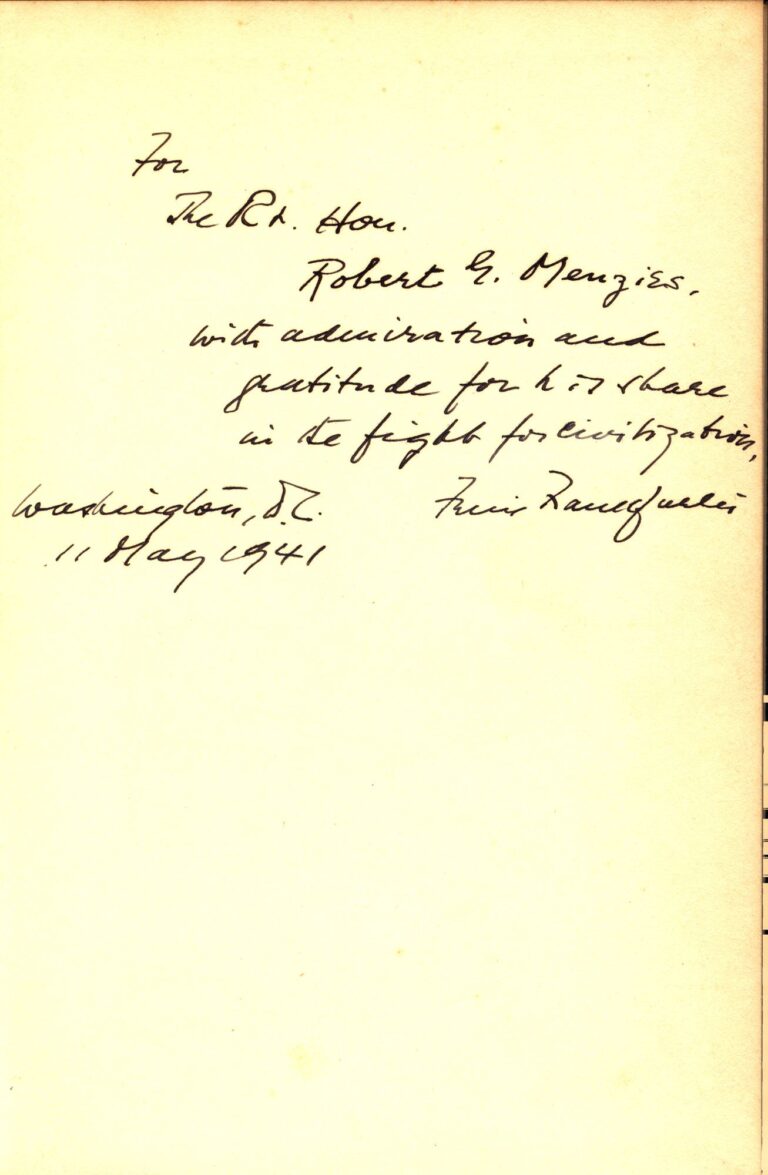 For
The Rt. Hon.
Robert G. Menzies.
with admiration and
gratitude for his share
in the fight for civilization,
Felix Frankfurter
Washington, D.C.
11 May 1941